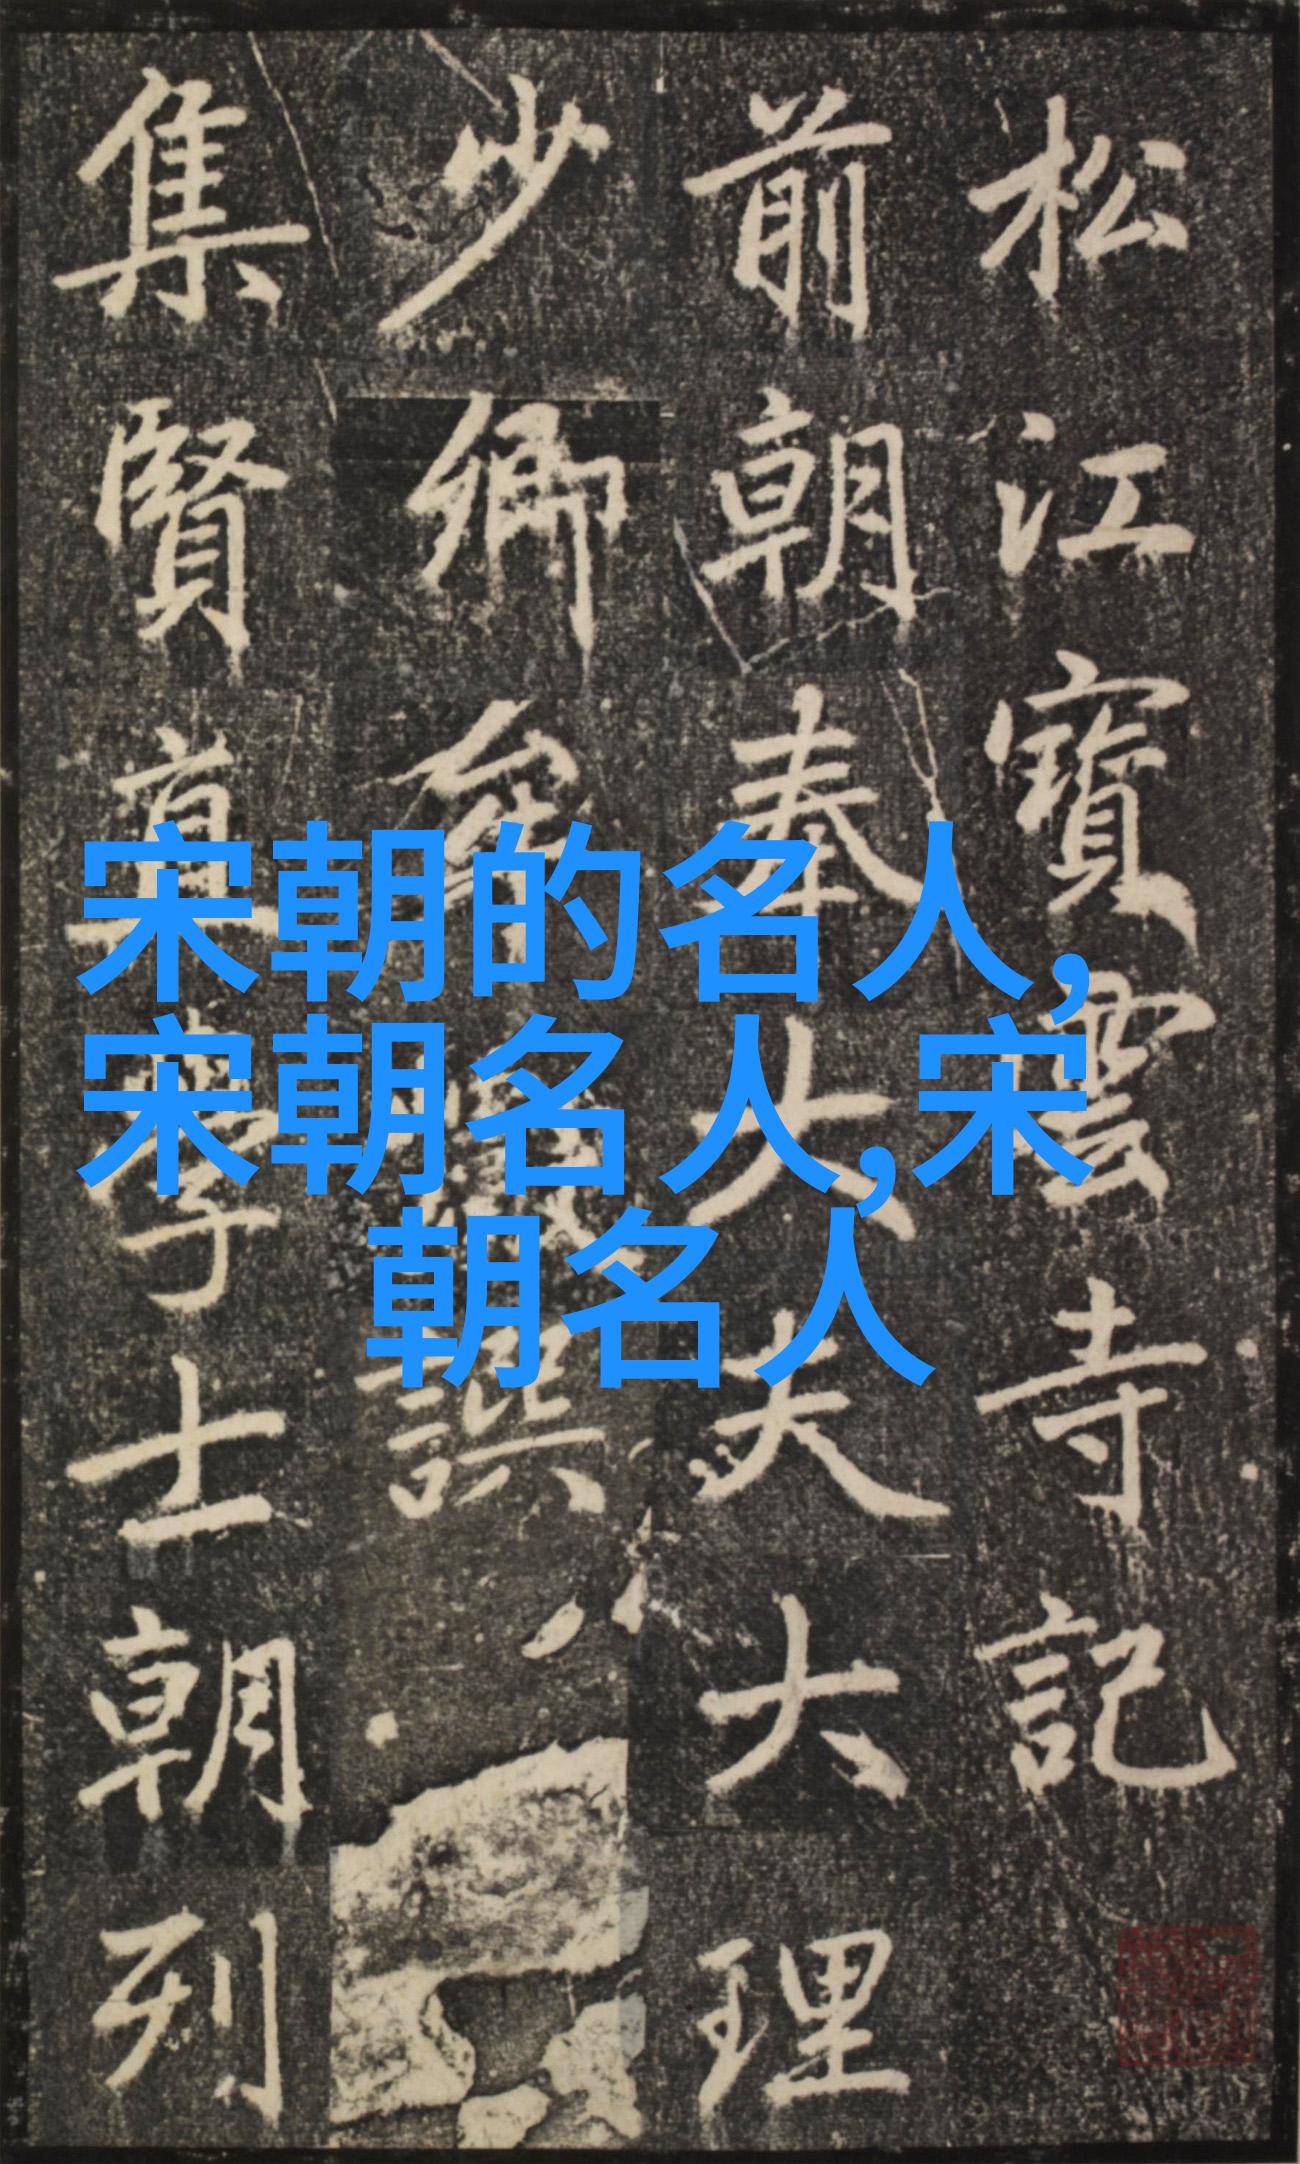 宋朝的名人,
宋朝名人,宋
朝名人
松江寶雲寺記
前朝奉大夫大理
少卿牟巘譔
集賢直學士朝列